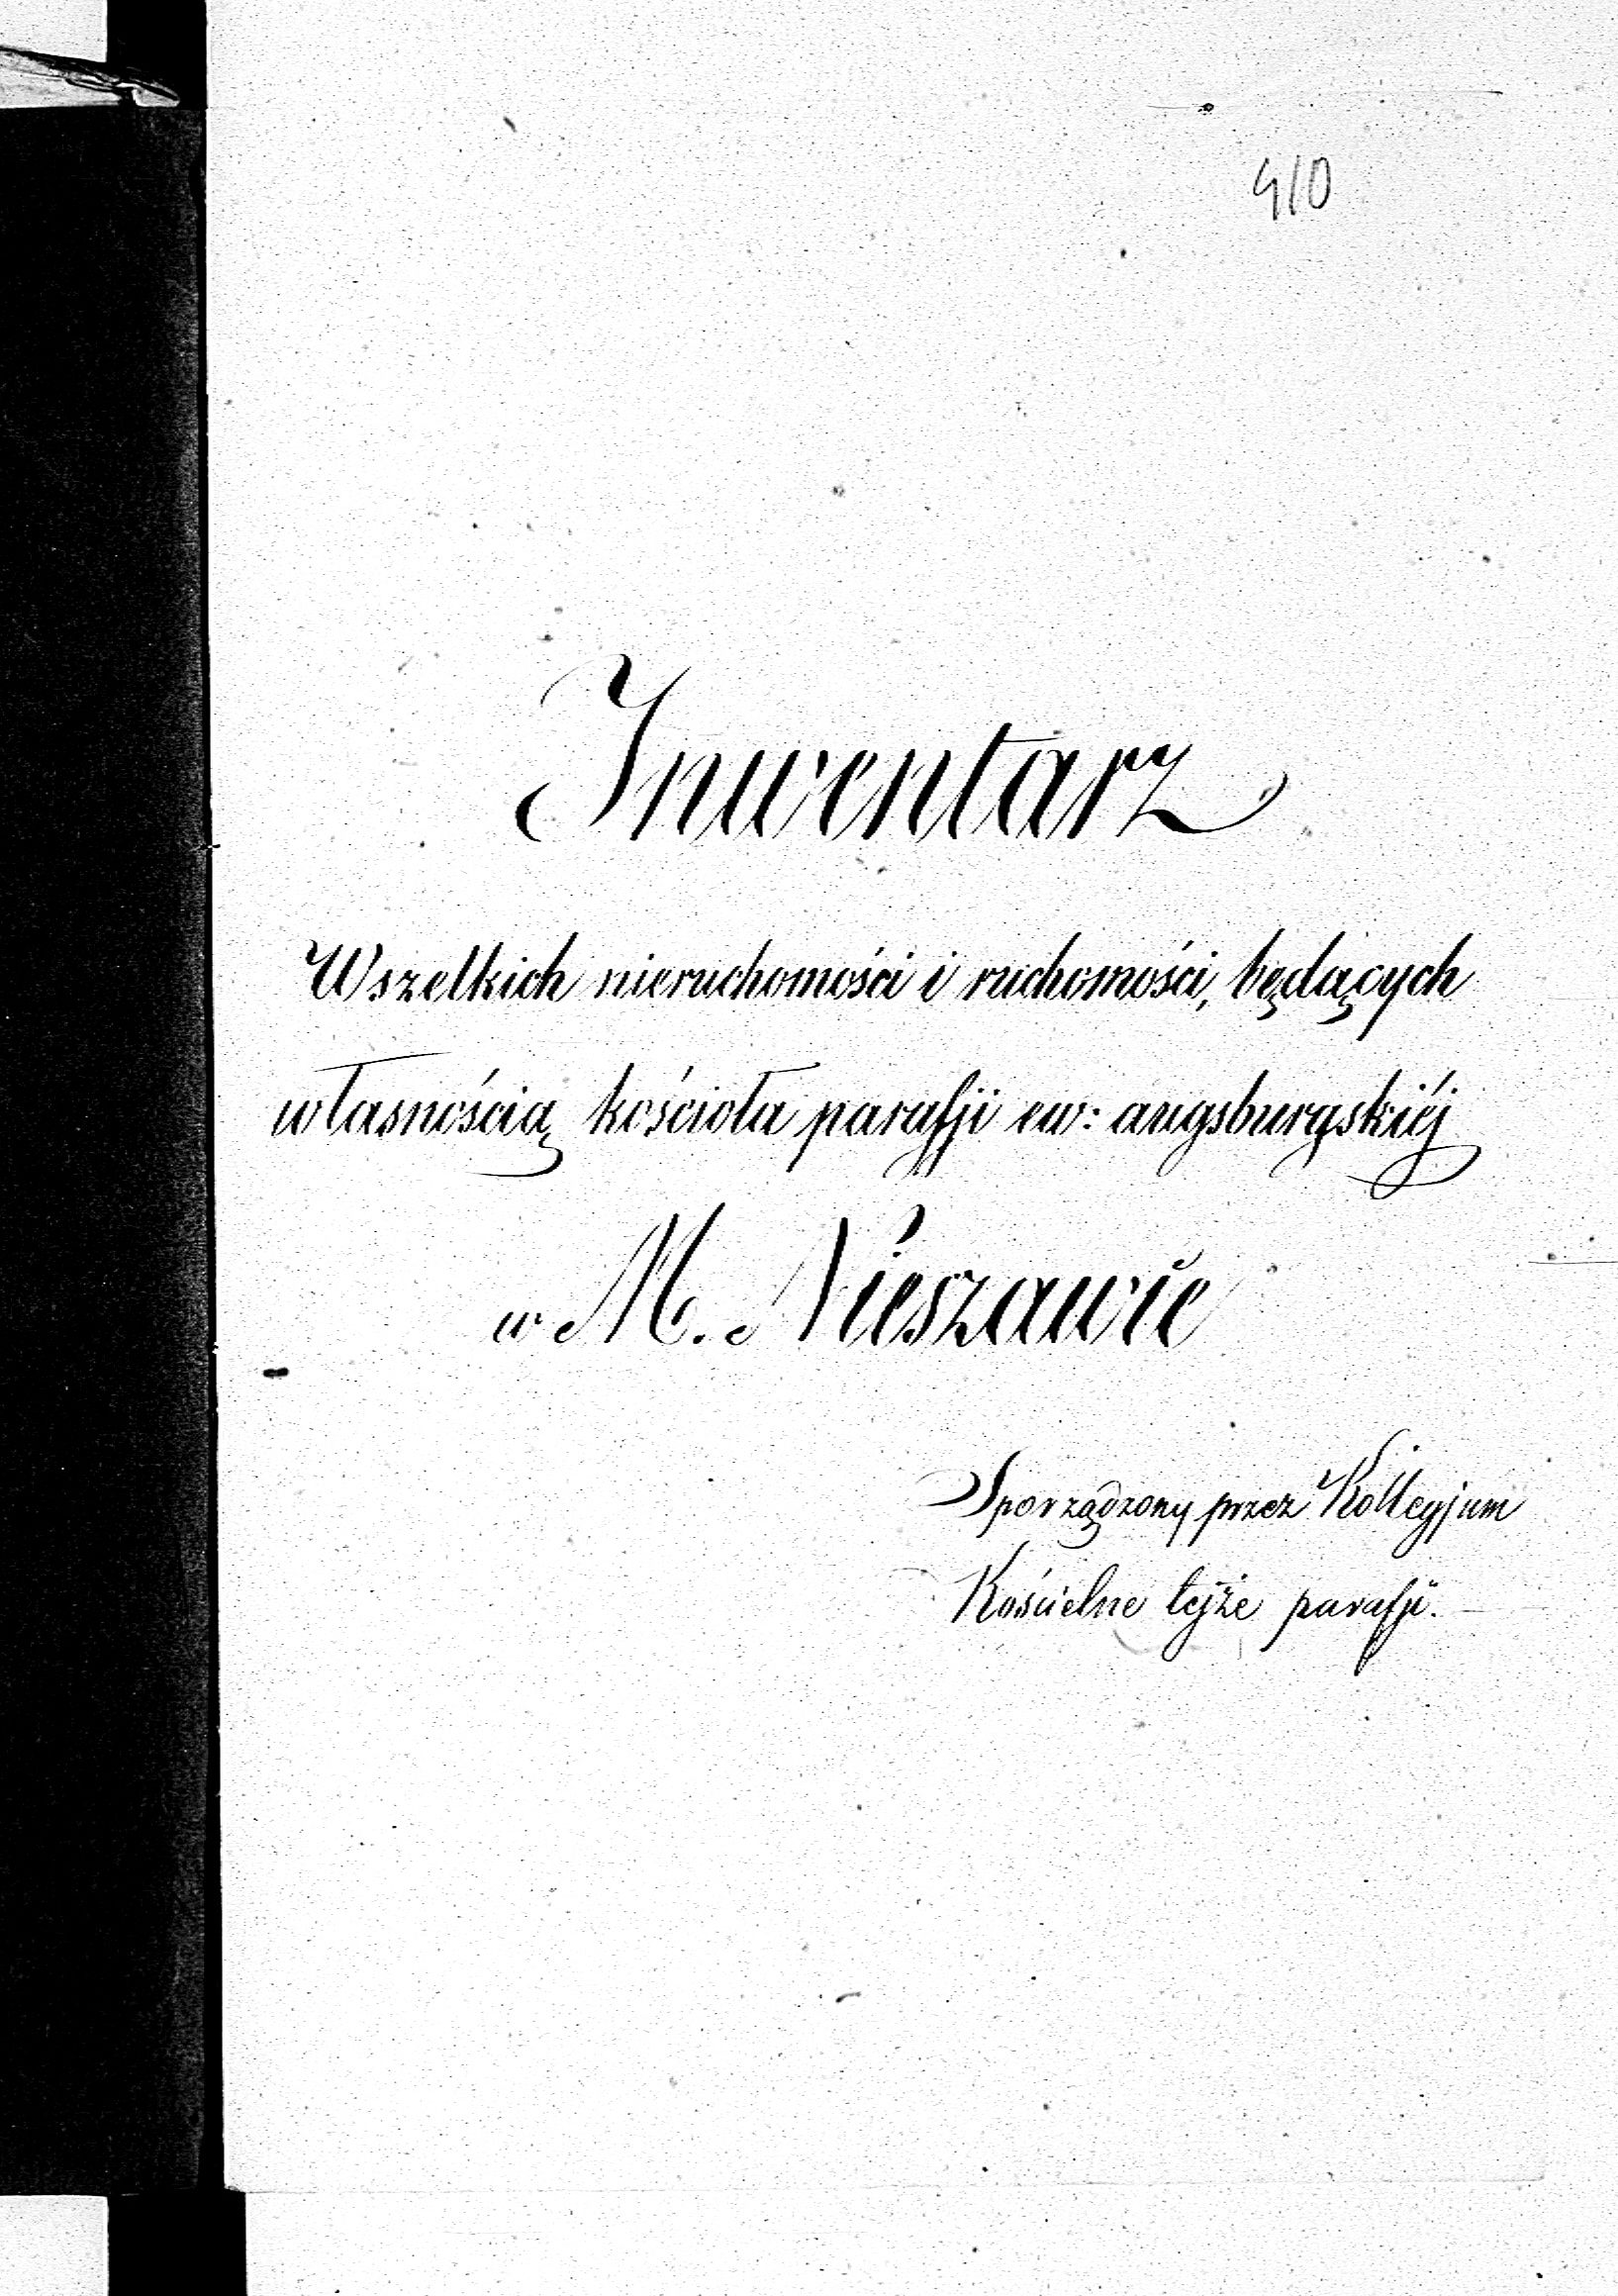 410
Inwentarz
Wszelkich nieruchomości i ruchomości, będących
własnością kościoła parafji ew: augsburgskiéj
w M. Nieszawie
Sporządzony przez Kollegjum
Kościelne tejże parafji.